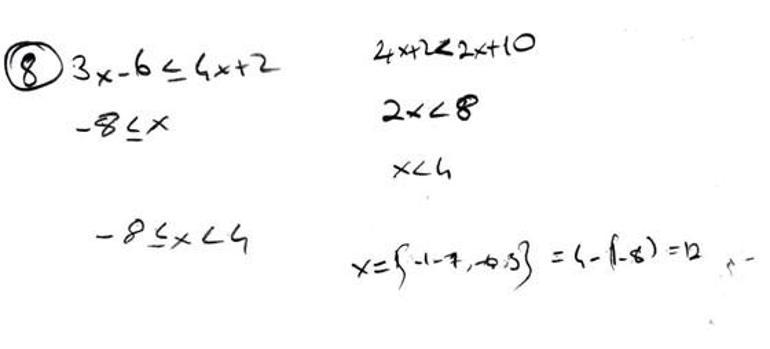 8 3x-6 ≤ 4x+2
-8 ≤ x
4x+2 < 2x+10
2x < 8
x < 4
-8 ≤ x < 4
x={ } = 4-(-8) = 12